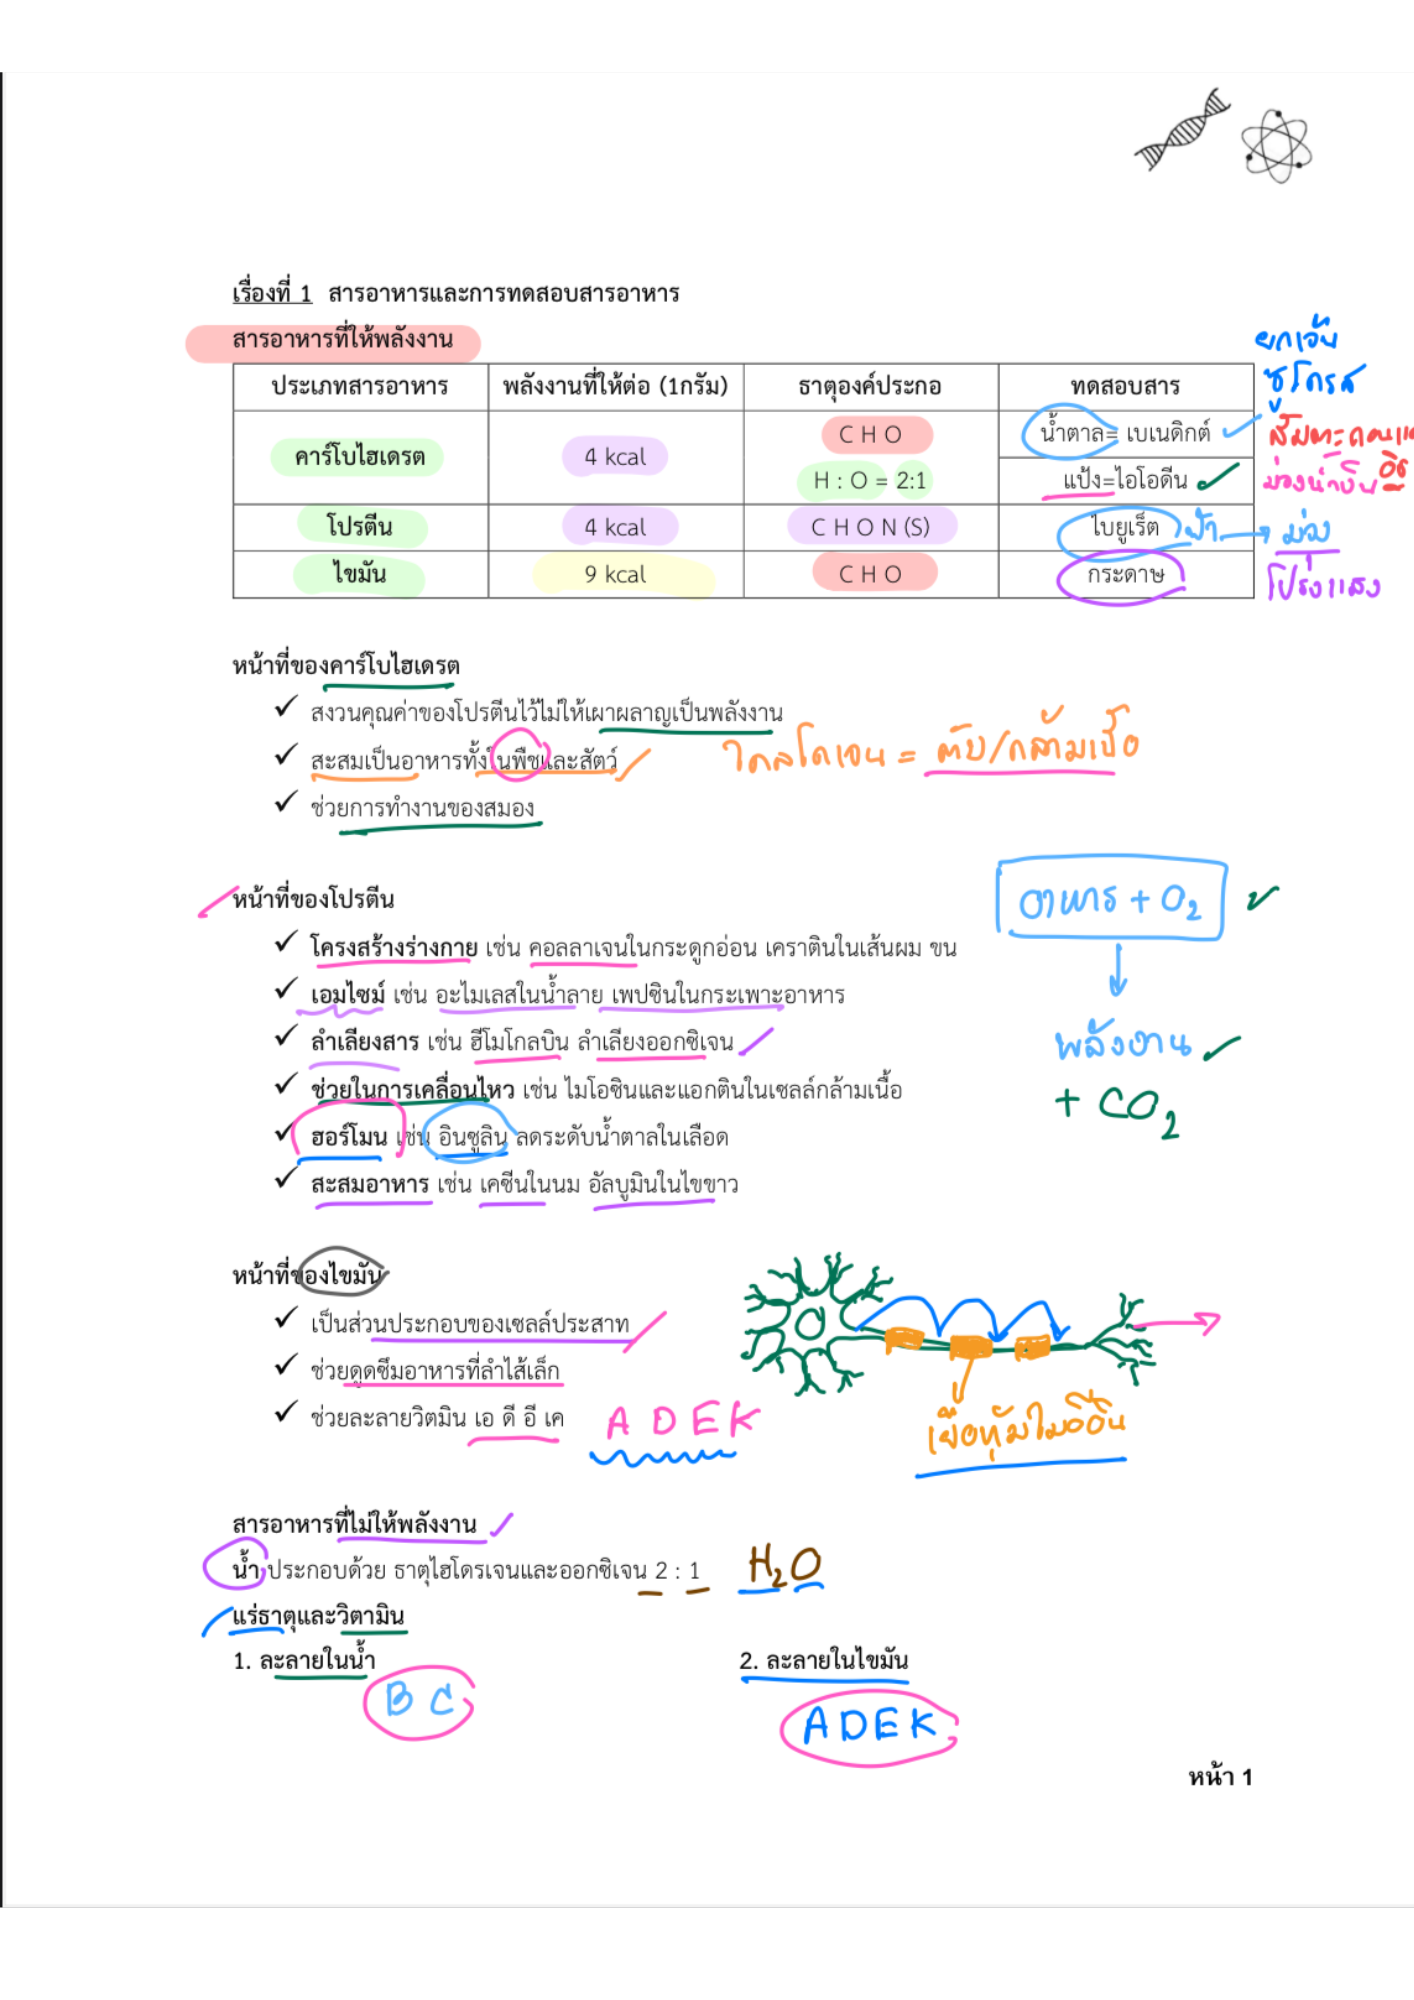 เรื่องที่ 1 สารอาหารและการทดสอบสารอาหาร
สารอาหารที่ให้พลังงาน
ยกเว้น
ซูโครส
ประเภทสารอาหาร พลังงานที่ให้ต่อ (1กรัม) ธาตุองค์ประกอ ทดสอบสาร
คาร์โบไฮเดรต 4 kcal C H O น้ำตาล= เบเนดิกต์
H : O = 2:1 แป้ง=ไอโอดีน ม่วงน้ำเงิน
โปรตีน 4 kcal C H O N (S) ไบยูเร็ต ฟ้า → ม่วง
ไขมัน 9 kcal C H O กระดาษ โปร่งแสง
หน้าที่ของคาร์โบไฮเดรต
✓ สงวนคุณค่าของโปรตีนไว้ไม่ให้เผาผลาญเป็นพลังงาน
✓ สะสมเป็นอาหารทั้งในพืชและสัตว์ ไกลโคเจน = ตับ/กล้ามเนื้อ
✓ ช่วยการทำงานของสมอง
หน้าที่ของโปรตีน
อาหาร + O2
✓ โครงสร้างร่างกาย เช่น คอลลาเจนในกระดูกอ่อน เคราตินในเส้นผม ขน
✓ เอมไซม์ เช่น อะไมเลสในน้ำลาย เพปซินในกระเพาะอาหาร
✓ ลำเลียงสาร เช่น ฮีโมโกลบิน ลำเลียงออกซิเจน
พลังงาน
✓ ช่วยในการเคลื่อนไหว เช่น ไมโอซินและแอกตินในเซลล์กล้ามเนื้อ
+ CO2
✓ ฮอร์โมน เช่น อินซูลิน ลดระดับน้ำตาลในเลือด
✓ สะสมอาหาร เช่น เคซีนในนม อัลบูมินในไข่ขาว
หน้าที่ของไขมัน
✓ เป็นส่วนประกอบของเซลล์ประสาท
✓ ช่วยดูดซึมอาหารที่ลำไส้เล็ก
✓ ช่วยละลายวิตมิน เอ ดี อี เค A D E K
เยื่อหุ้มไมอีลิน
สารอาหารที่ไม่ให้พลังงาน
น้ำ ประกอบด้วย ธาตุไฮโดรเจนและออกซิเจน 2 : 1 H2O
แร่ธาตุและวิตามิน
1. ละลายในน้ำ 2. ละลายในไขมัน
B C ADEK
หน้า 1